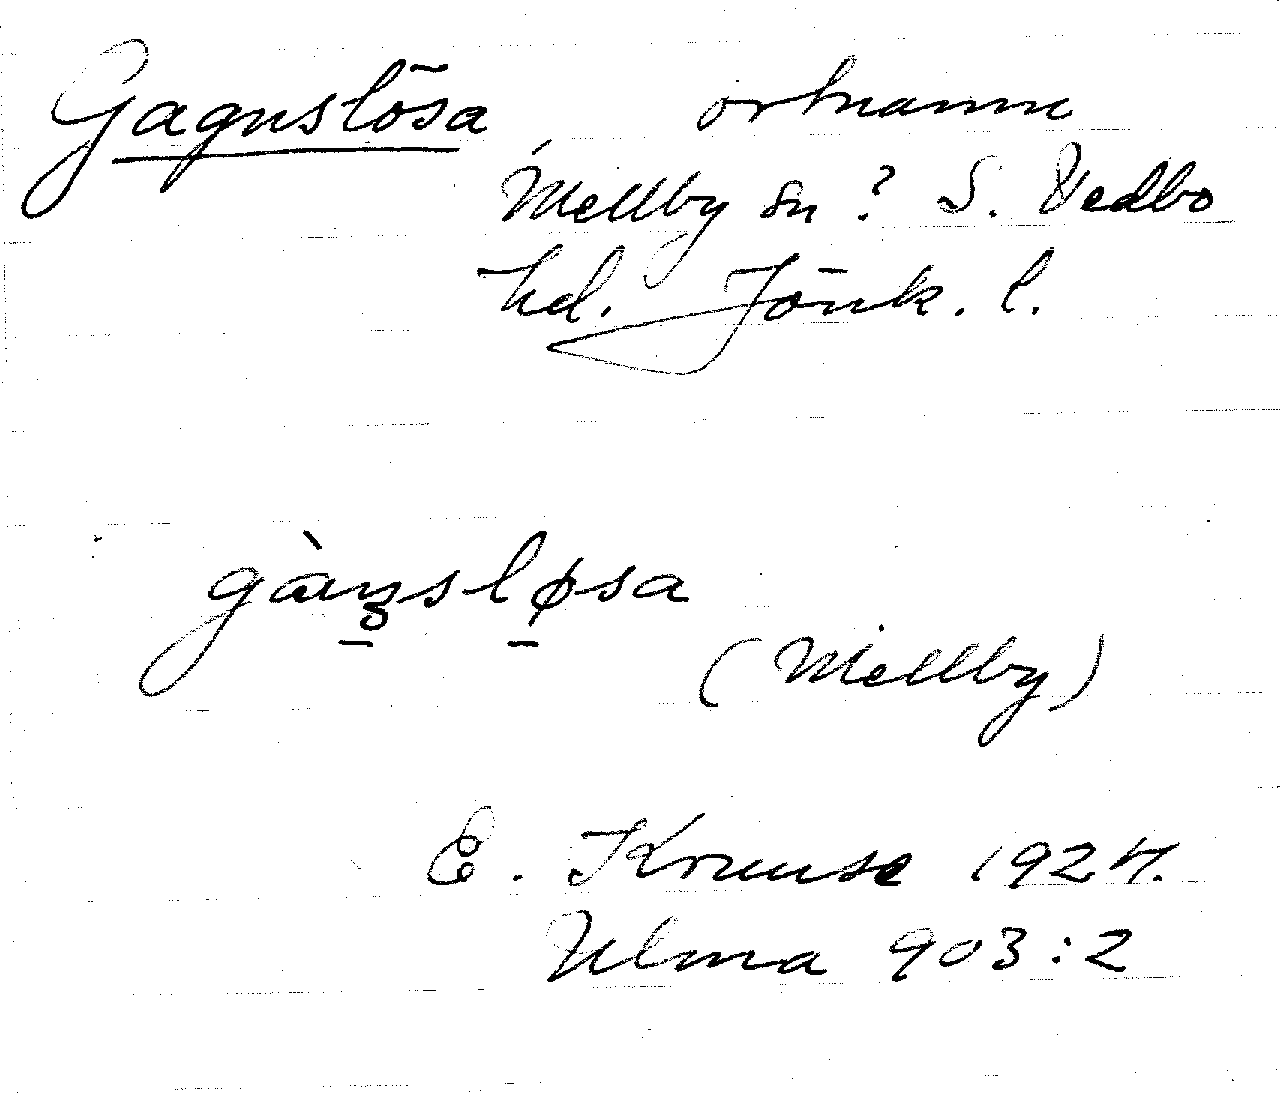 Gagnslösa ortnamn
Mellby sn? S. Vedbo
hd. Jönk. l.
(Mellby)
E. Kruuse 1924.
Ulma 903:2